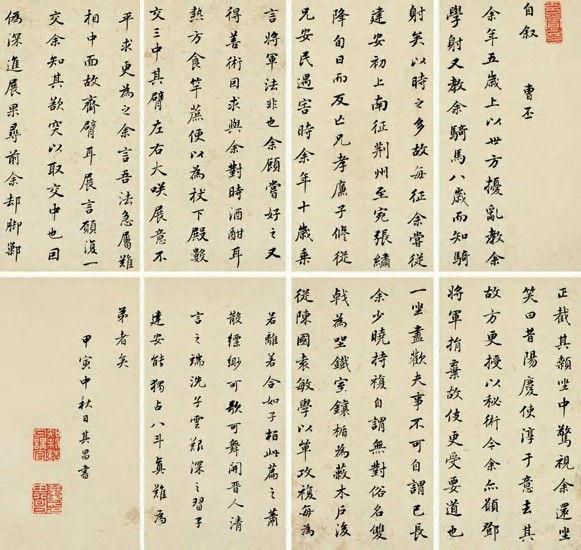 自叙
曹丕
余年五歲上以世方擾亂教余
學射又教余騎馬八歲而知騎
射矣以時之多故每征余嘗從
建安初上南征荆州至宛張繡
降旬日而反亡兄孝廉子脩從
兄安民遇害時余年十歲乘
言將軍法非也余顧嘗好之又
得善術因求與余對時酒酣耳
熱方食竿蔗便以為杖下殿數
交三中其臂左右大咲展意不
平求更為之余言吾法急屬難
相中面故齊臂耳展言願復一
交余知其欲突以取交中也因
偽深進展果尋前余却脚鄛
正截其顙坐中驚視余還坐
笑曰昔陽慶使淳于意去其
故方更授以秘術今余亦願鄧
將軍捐棄故伎更受要道也
一坐盡歡夫事不可自謂己長
余少曉持複自謂無對俗名雙
戟為坐鐵室鑲楯為蔽木戶後
從陳國袁敏學以單攻複每為
若離若合如子柏此篇之蕭
散縹緲可歌可舞開晉人清
言之端洗子雲艱深之習子
建安能獨占八斗真難為
弟者矣
甲寅中秋日其昌書